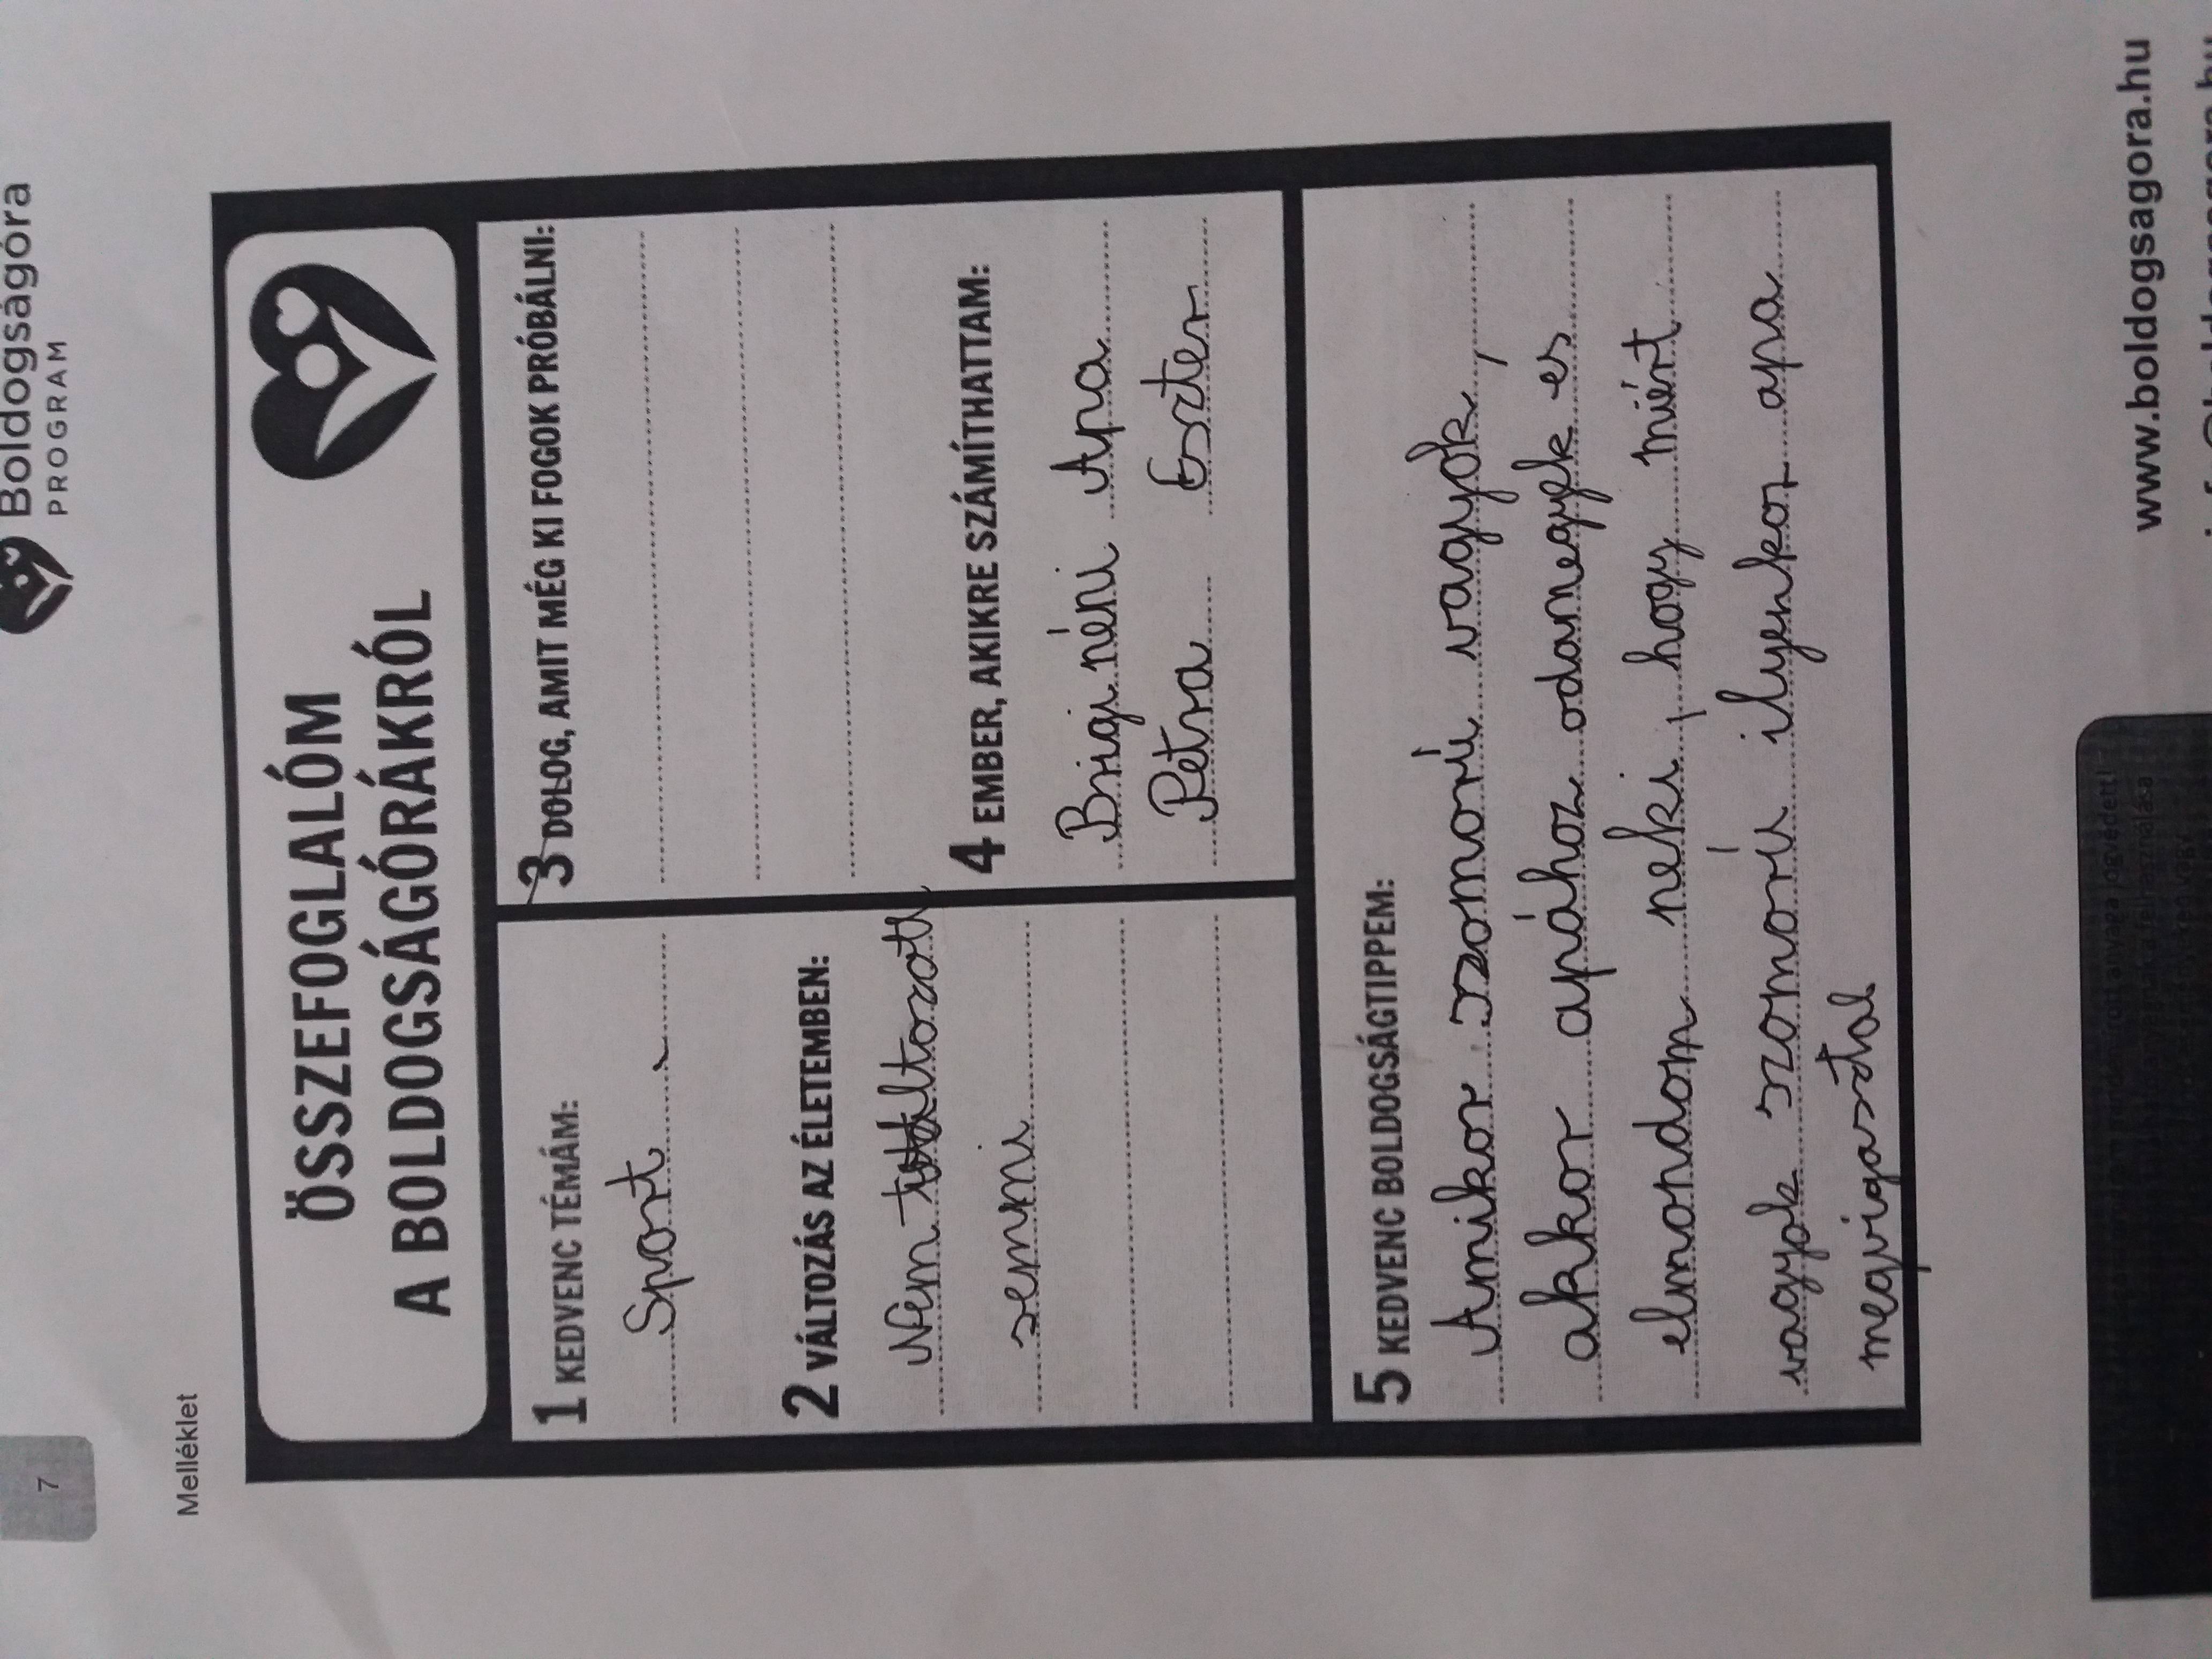 7
Boldogságóra
PROGRAM
Melléklet
ÖSSZEFOGLALÓM
A BOLDOGSÁGÓRÁKRÓL
1 KEDVENC TÉMÁM:
Sport
2 VÁLTOZÁS AZ ÉLETEMBEN:
Nem
semmi
3 DOLOG, AMIT MÉG KI FOGOK PRÓBÁLNI:
4 EMBER, AKIKRE SZÁMÍTHATTAM:
Brigi néni Apa
Petra Eszter
5 KEDVENC BOLDOGSÁGTIPPEM:
Amikor szomorú vagyok,
akkor apához odamegyek es
elmondom neki, hogy miért
vagyok szomorú ilyenkor apa
megvigasztal
www.boldogsagora.hu